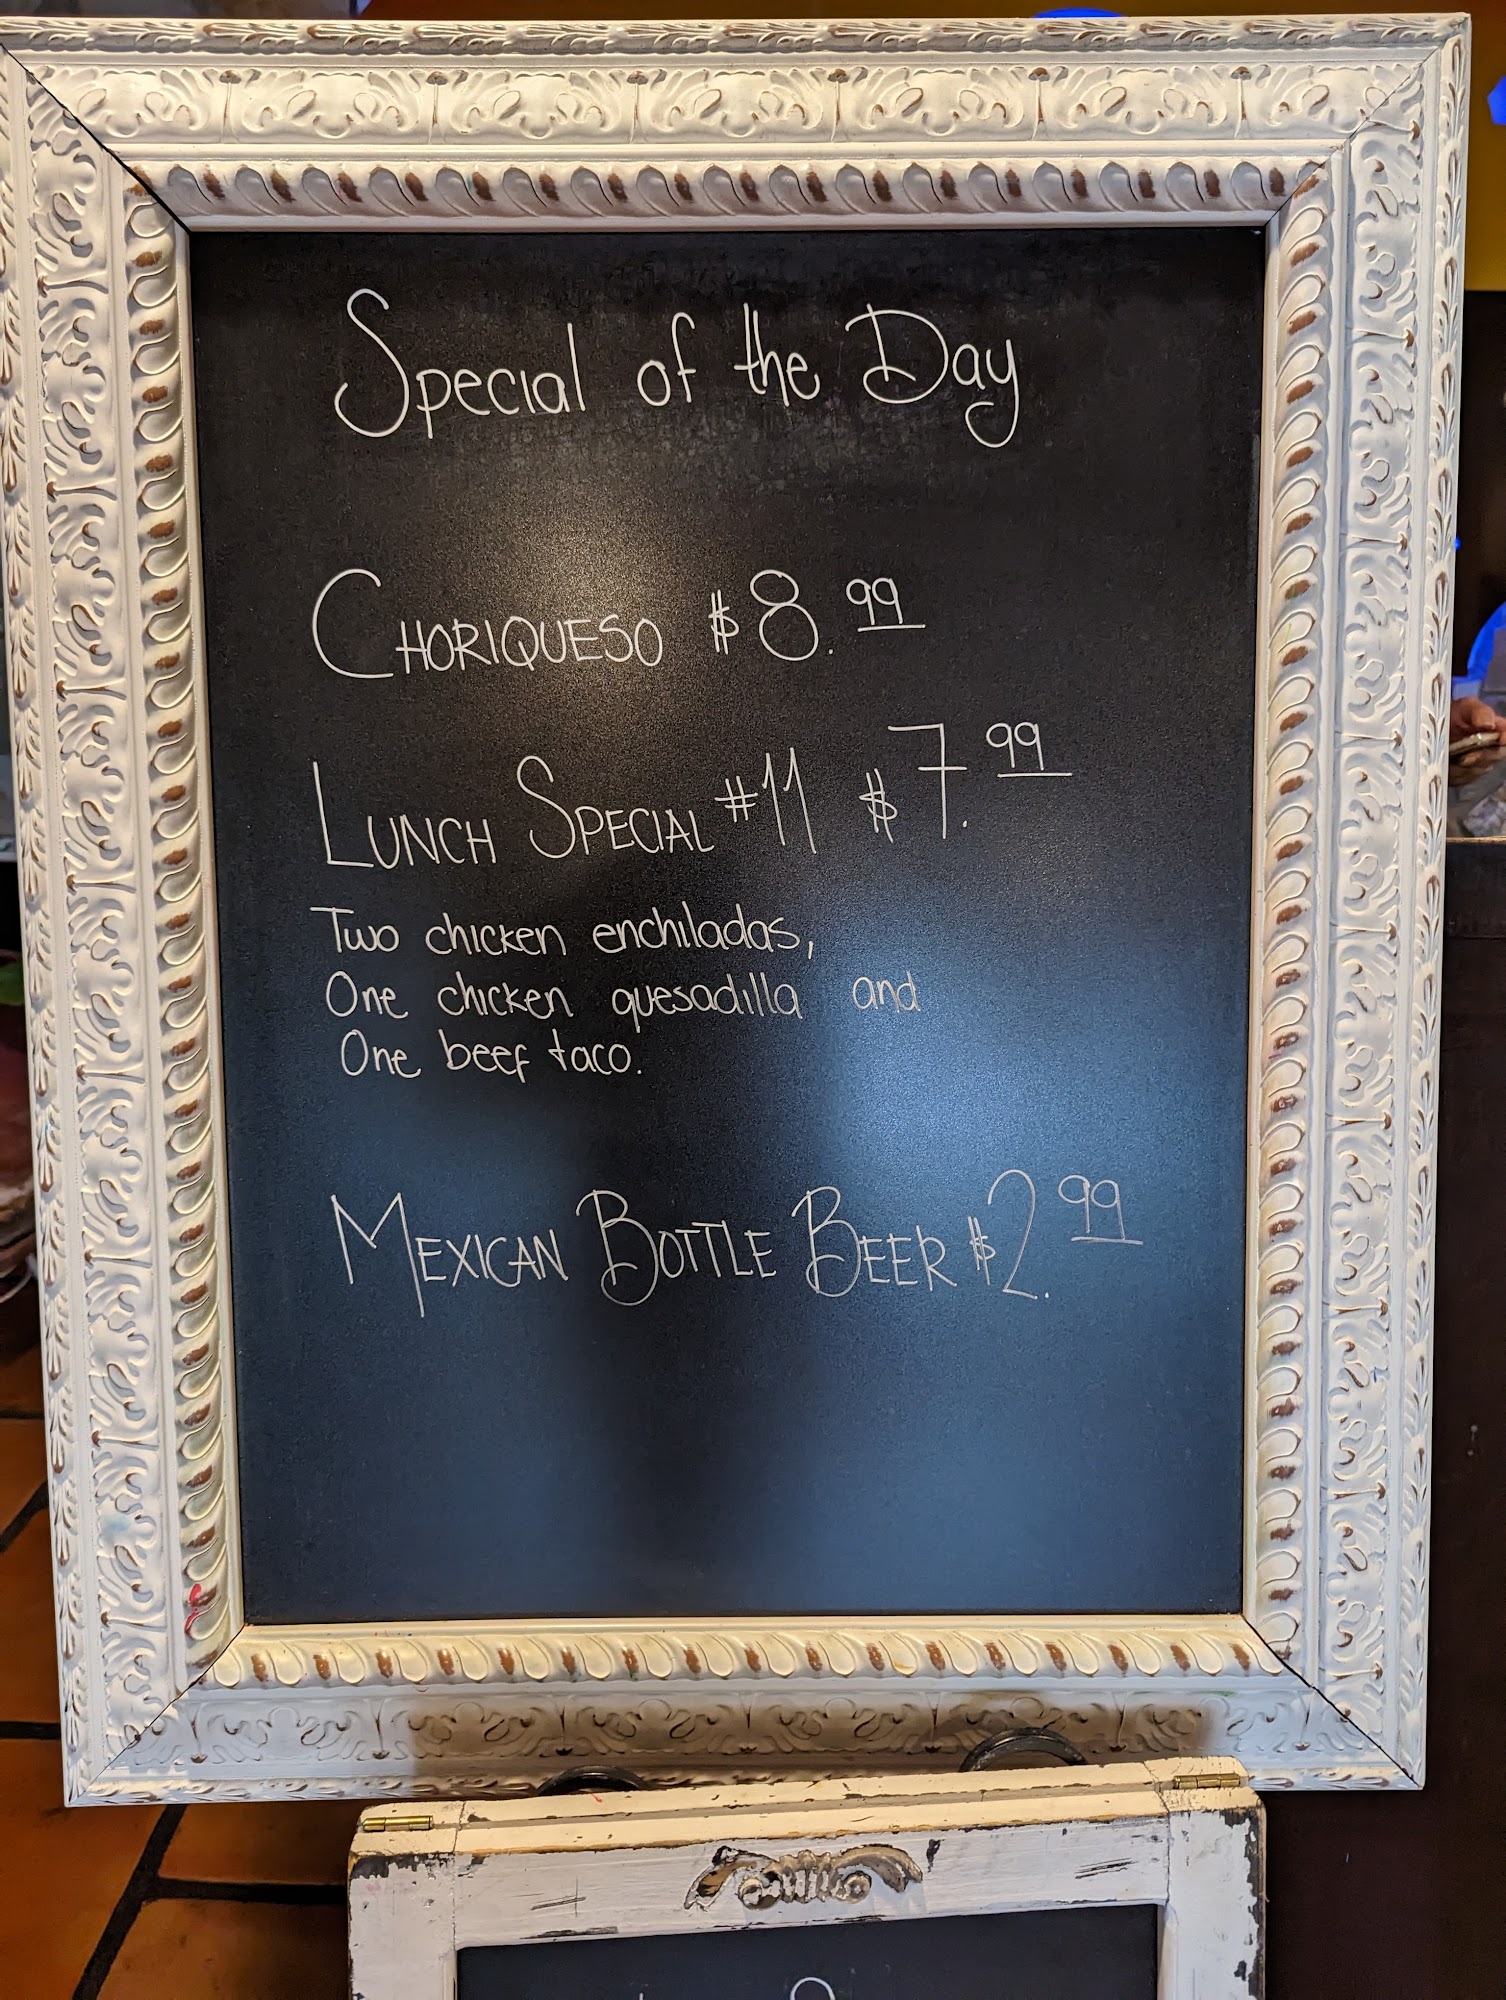 Special of the Day
CHORIQUESO $8.99
LUNCH SPECIAL #11 $7.99
Two chicken enchiladas,
One chicken quesadilla and
One beef taco.
MEXICAN BOTTLE BEER $2.99